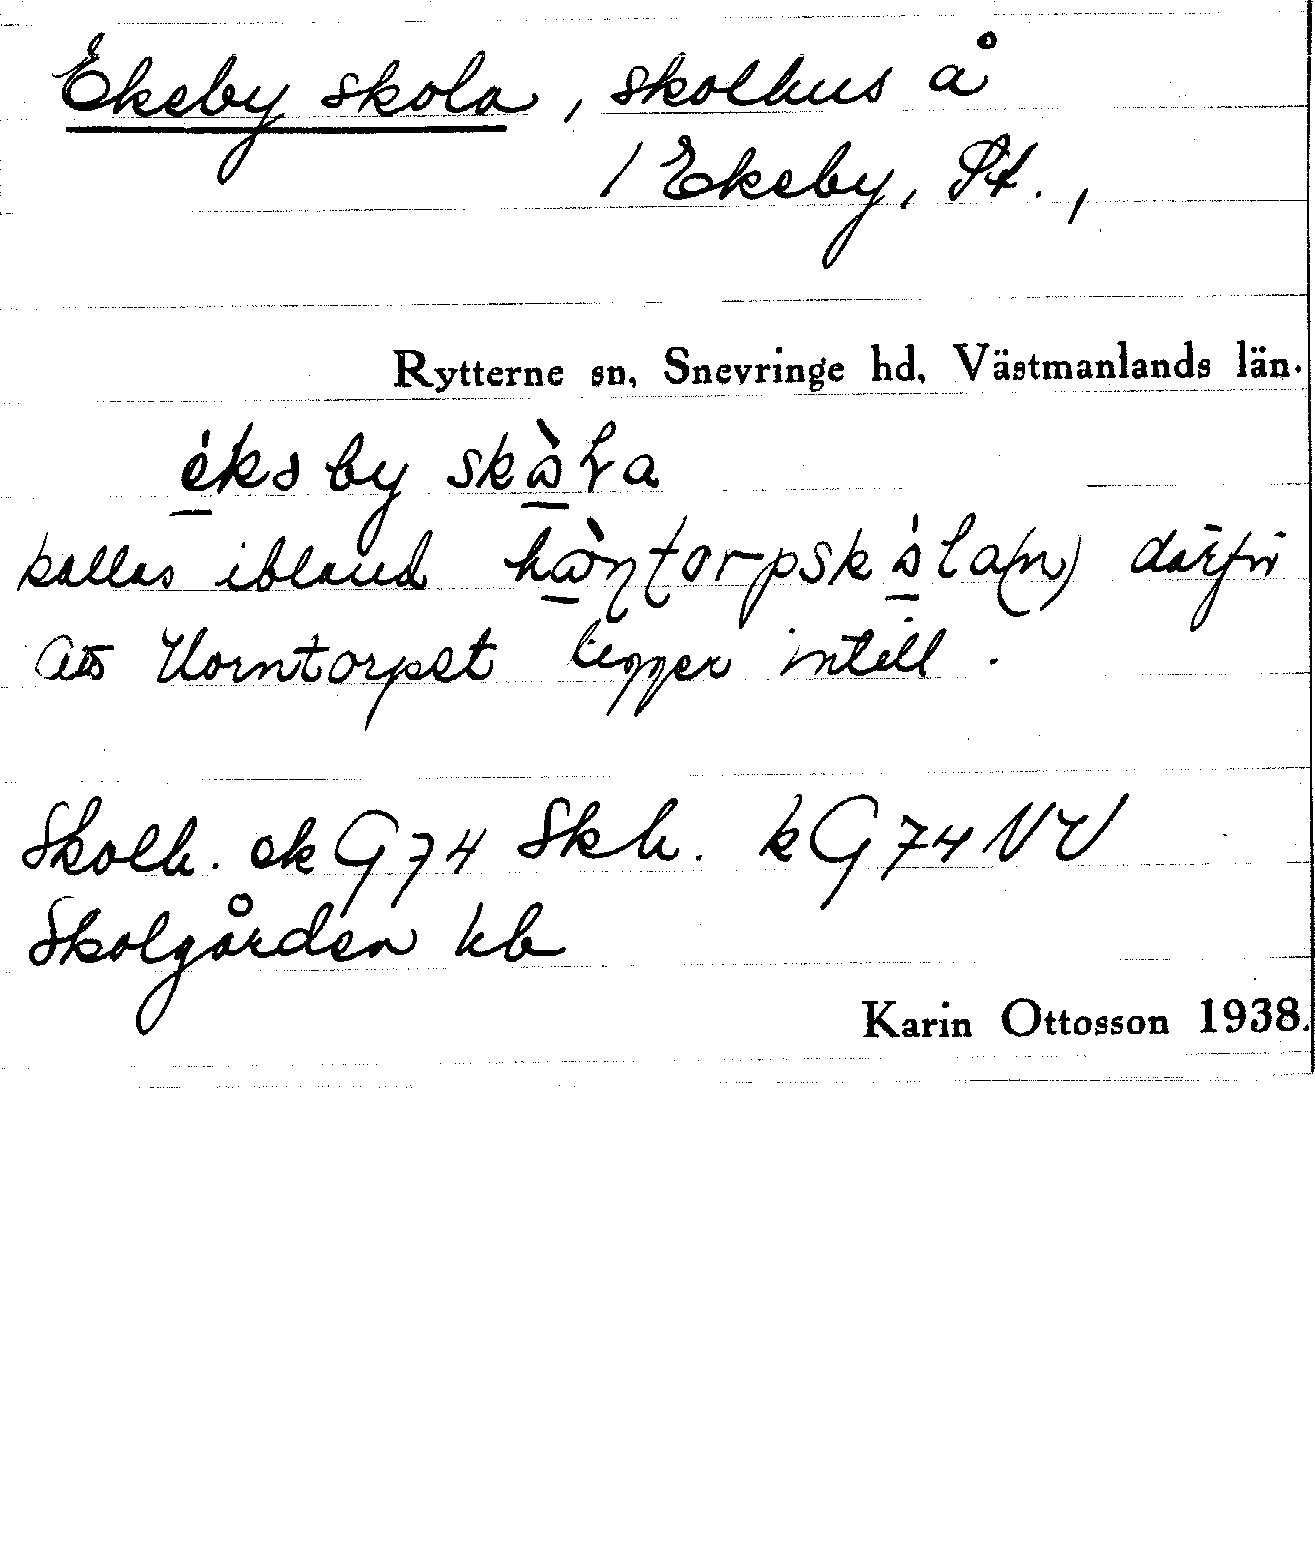 Ekeby skola, skolhus å
/ Ekeby, St.,
Rytterne sn, Snevringe hd, Västmanlands län.
kallas ibland därför
att Horntorpet ligger intill.
Skolh. ek G74 Skh. k G74 NV
Skolgården kb
Karin Ottosson 1938.